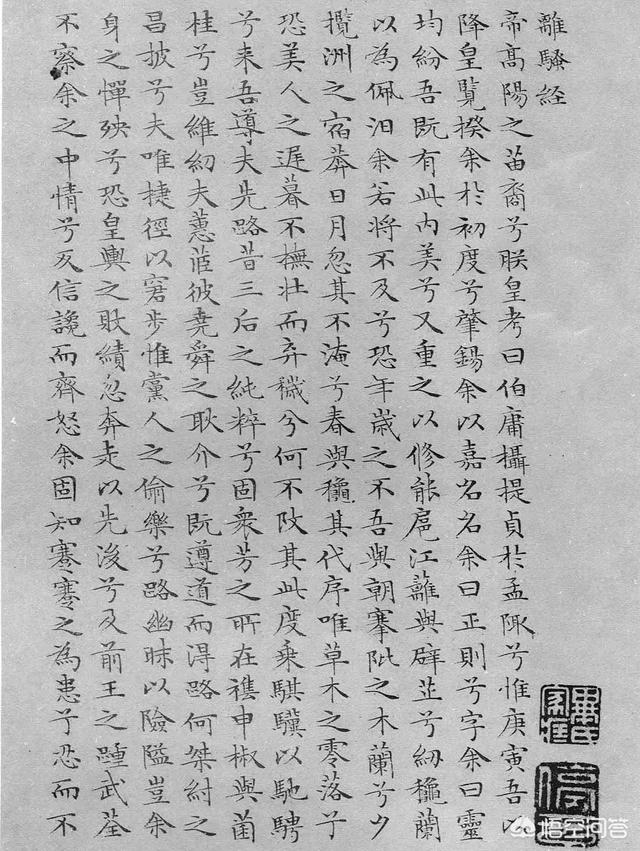 離騷経
帝髙陽之苗裔兮朕皇考曰伯庸攝提貞於孟陬兮惟庚寅吾以
降皇覽揆余於初度兮肇錫余以嘉名名余曰正則兮字余曰靈
均紛吾既有此内美兮又重之以修能扈江蘺與辟芷兮紉龝蘭
以為佩汨余若將不及兮恐年歲之不吾與朝搴阰之木蘭兮夕
攬洲之宿莽日月忽其不淹兮春與龝其代序唯草木之零落兮
恐美人之遲暮不撫壯而弃穢兮何不改其此度乘騏驥以馳騁
兮来吾導夫先路昔三后之純粹兮固衆芳之所在襍申椒與菌
桂兮豈維紉夫蕙茝彼堯舜之耿介兮既遵道而得路何桀紂之
昌披兮夫唯捷徑以窘步惟黨人之偷樂兮路幽昧以險隘豈余
身之憚殃兮恐皇輿之敗績忽奔走以先後兮及前王之踵武荃
不察余之中情兮反信讒而齊怒余固知謇謇之為患兮忍而不
悟空问答